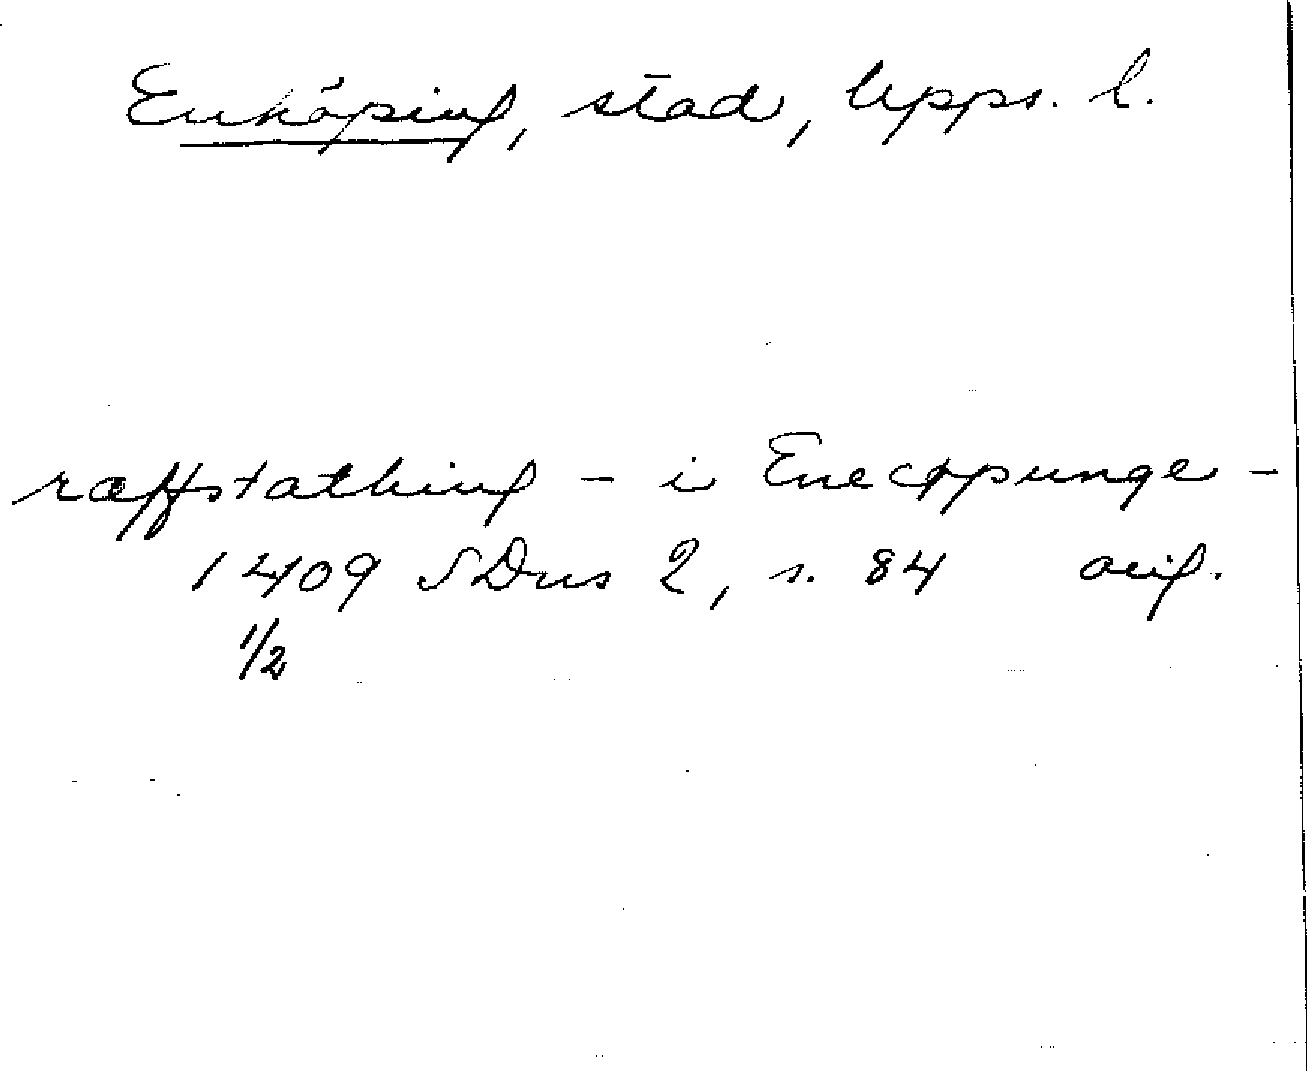 Enköping, stad, Upps. l.
ræffstathing – i Enecøpunge –
1409 SDns 2, s. 84 orig.
1/2